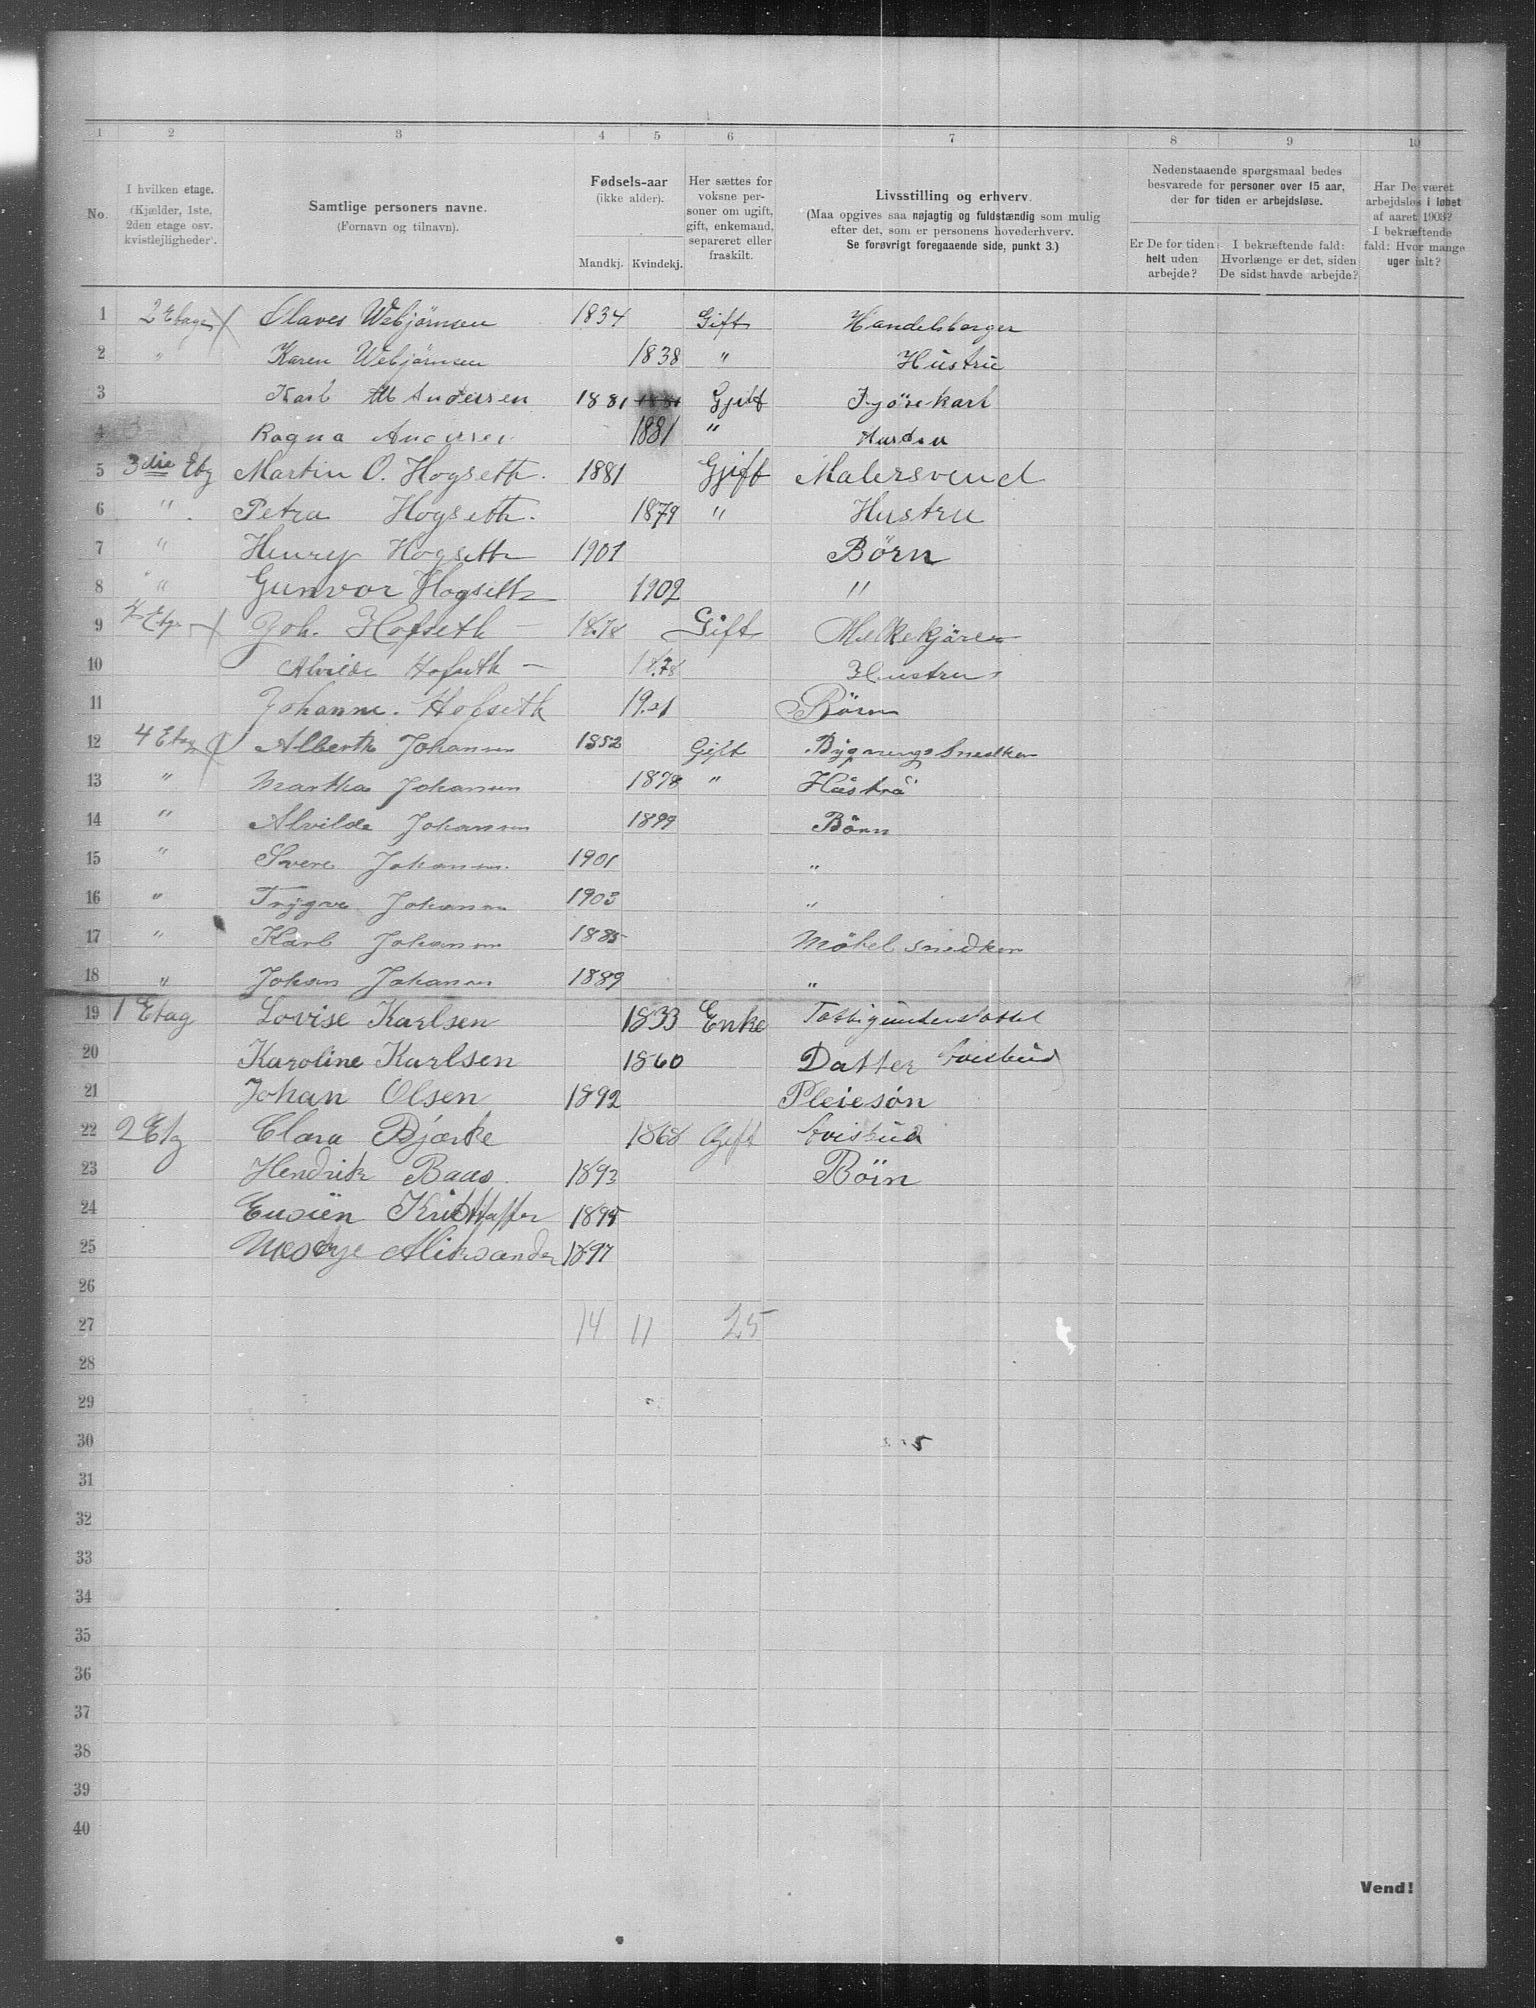 1 2 3 4 5 6 7 8 9 10
No.
I hvilken etage.
(Kjælder, 1ste,
2den etage osv.
kvistlejligheder).
Samtlige personers navne.
(Fornavn og tilnavn).
Fødsels-aar
(ikke alder).
Mandkj. Kvindekj.
Her sættes for
voksne per-
soner om ugift,
gift, enkemand,
separeret eller
fraskilt.
Livsstilling og erhverv.
(Maa opgives saa nøjagtig og fuldstændig som mulig
efter det, som er personens hovederhverv.
Se forøvrigt foregaaende side, punkt 3.)
Nedenstaaende spørgsmaal bedes
besvarede for personer over 15 aar,
der for tiden er arbejdsløse.
Er De for tiden
helt uden
arbejde?
I bekræftende fald:
Hvorlænge er det, siden
De sidst havde arbejde?
Har De været
arbejdsløs i løbet
af aaret 1903?
I bekræftende
fald: Hvor mange
uger ialt?
1 2 Etage Olaves Webjørnsen 1834 Gift Handelsborger
2 " Karen Webjørnsen 1838 " Hustru
3 Karl M Andersen 1881 1881 Gjift Kjørekarl
4 Ragna Andersen 1881 "
5 3die Etg Martin O. Hogseth. 1881 Gjift Malersvend
6 " Petra Hogseth. 1879 " Hustru
7 " Henry Hogseth 1901 Børn
8 " Gunvor Hogseth 1902 "
9 Etg. Joh. Hofseth 1878 Gift Melkekjører
10 Alvilde Hofseth 1878 Hustru
11 Johanne. Hofseth 19.01 Børn
12 4 Etag Alberth Johansen 1852 Gift Bygnings Snedker
13 " Martha Johansen 1878 " Hustru
14 " Alvilde Johansen 1899 Børn
15 " Sverre Johansen 1901 "
16 " Trygve Johansen 1903 "
17 " Karl Johansen 1885 Møbel snedker
18 " Johan Johansen 1889 "
19 1 Etag Lovise Karlsen 1833 Enke Fattigunderstøttet
20 Karoline Karlsen 1860 Datter Avisbud
21 Johan Olsen 1892 Pleiesøn
22 2 Etg Clara Bjærke 1868 Gift Avisbud
23 Hendrik Baas 1893 Børn
24 Kristoffer 1895
25 Aleksander 1897
26
27 14 11 25
28
29
30
31
32
33
34
35
36
37
38
39
40
Vend!